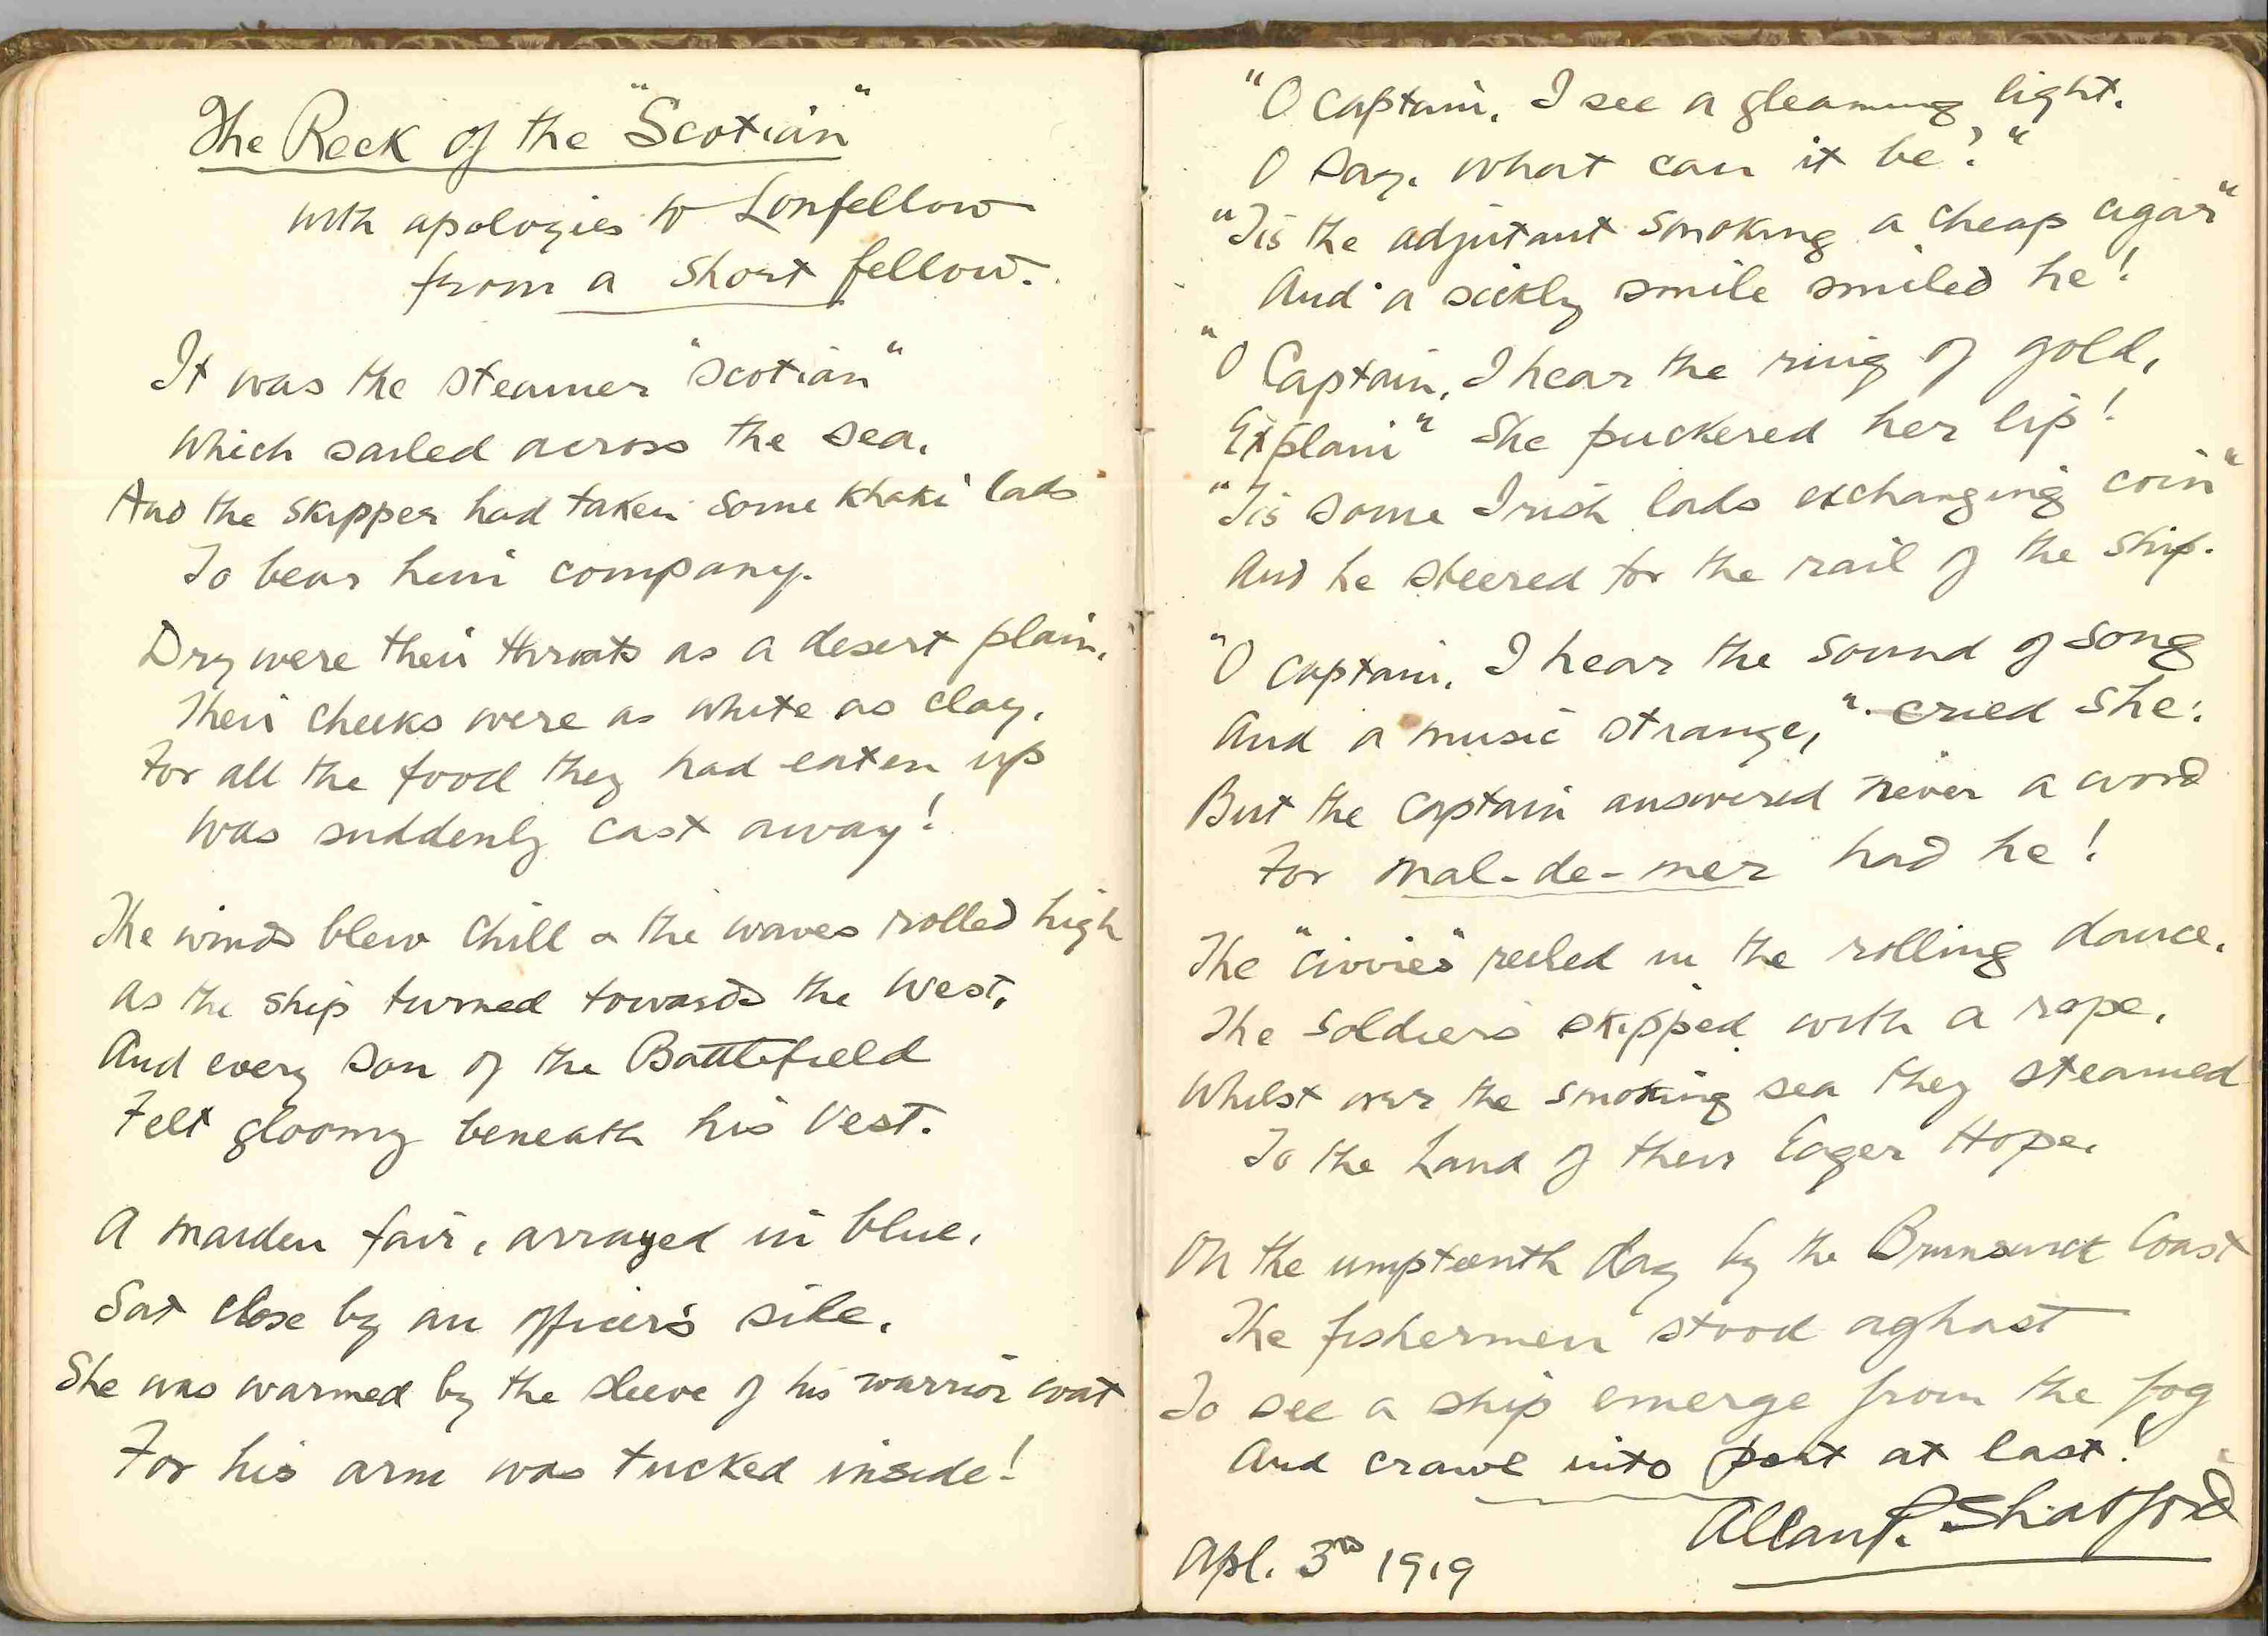 The Reck of the "Scotian"
with apologies to Lonfellow
from a short fellow.
It was the steamer "Scotian"
Which sailed across the sea,
And the skipper had taken some khaki lads
To bear him company.
Dry were their throats as a desert plain,
Their cheeks were as white as clay,
For all the food they had eaten up
Was suddenly cast away!
The winds blew chill & the waves rolled high
As the ship turned towards the West,
And every son of the Battlefield
Felt gloomy beneath his vest.
A maiden fair, arrayed in blue,
Sat close by an officer's side,
She was warmed by the sleeve of his warrior coat
For his arm was tucked inside!
"O Captain, I see a gleaming light,
O say, what can it be?"
"Tis the adjutant smoking a cheap cigar"
And a sickly smile smiled he!
"O Captain, I hear the ring of gold,
Explain" She puckered her lip!
"Tis some Irish lads exchanging coin"
And he steered for the rail of the ship.
"O Captain, I hear the sound of song
And a music strange," cried she:
But the Captain answered never a word
For mal-de-mer had he!
The "civvies" reeled in the rolling dance,
The soldiers skipped with a rope,
Whilst over the smoking sea they steamed
To the Land of their Eager Hope.
On the umpteenth day by the Brunswick Coast
The fishermen stood aghast
To see a ship emerge from the fog
And crawl into port at last!
Allan P. Shatford
Apl. 3rd 1919